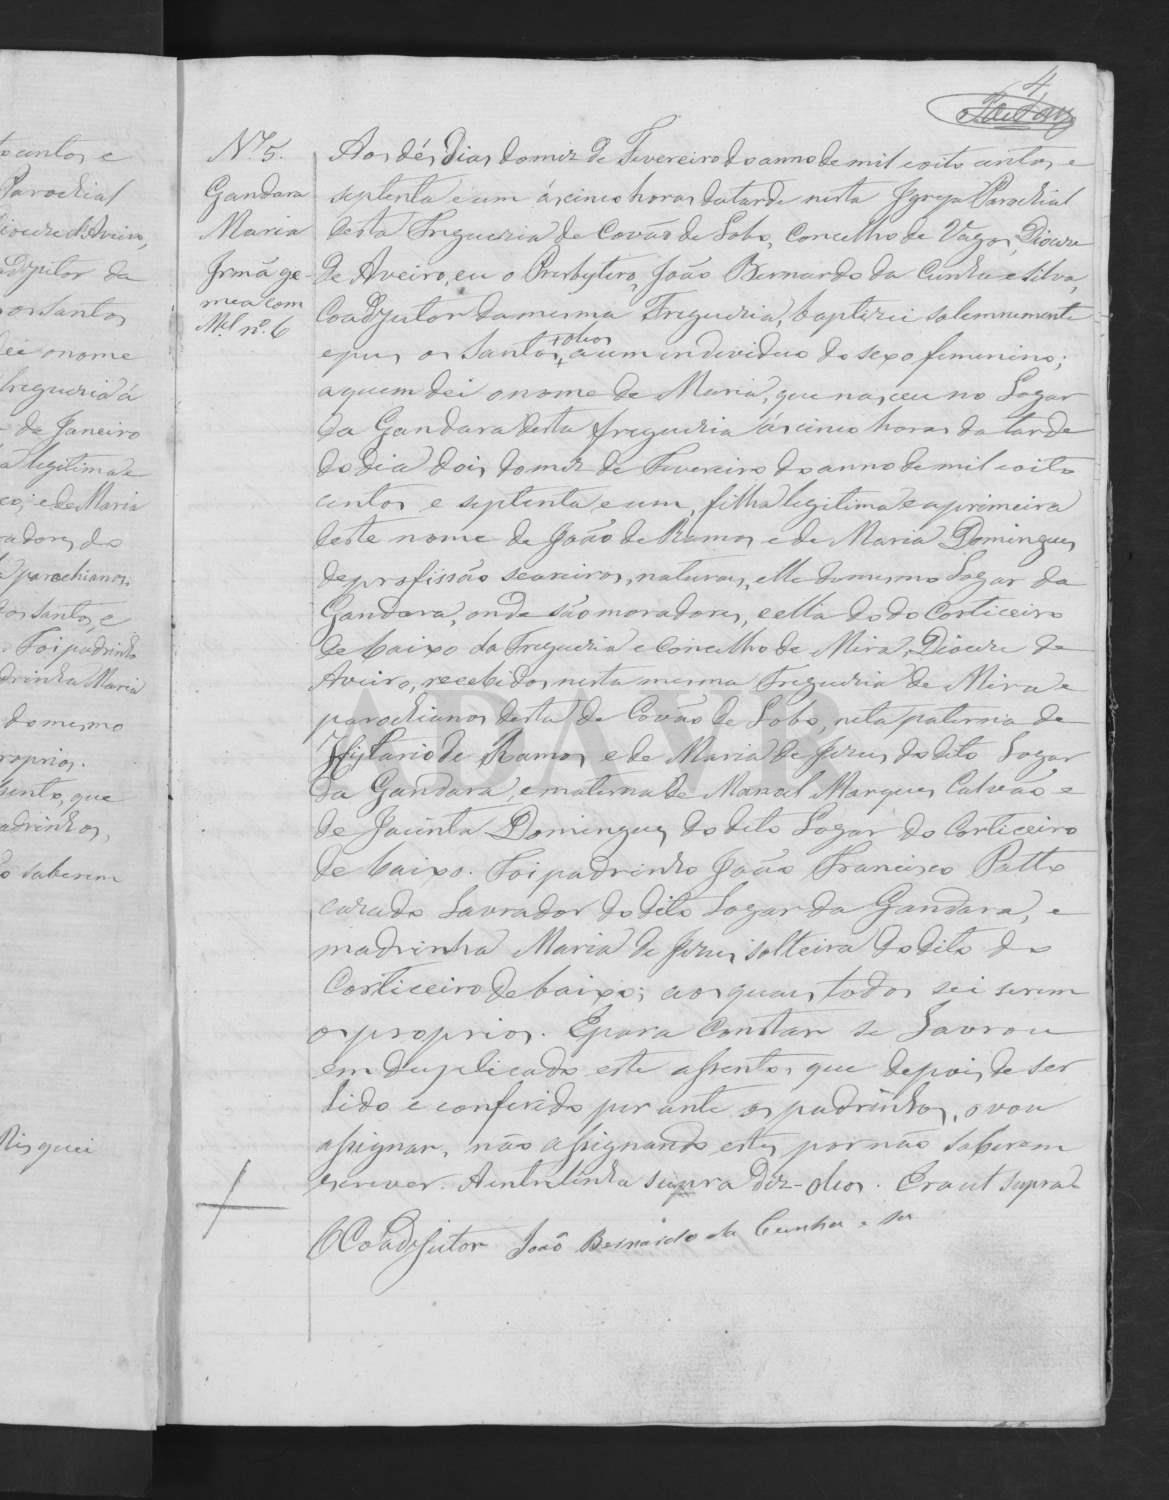 4
Nº 5.
Gandara
Maria
Irmã ge-
mea com
Mel nº 6
Aos dés dias do mez de Fevereiro do anno de mil e oito centos e
septenta e um ás cinco horas da tarde nesta Igreja Parochial
desta Freguezia de Covão de Lobo, Concelho de Vagos, Dioceze
de Aveiro, eu o Presbytero, João Bernardo da Cunha e Silva,
Coadjutor da mesma Freguezia, baptizei solemnemente
e puz os Santos oleos a um individuo do sexo femenino;
a quem dei o nome de Maria, que nasceu no Logar
da Gandara desta freguezia ás cinco horas da tarde
do dia dois do mez de Fevereiro do anno de mil e oito
centos e septenta e um, filha legitima e a primeira
deste nome de João de Ramos e de Maria Domingues
de profissão seareiros, naturaes, elle do mesmo Logar da
Gandara, onde são moradores, e ella do do Corticeiro
de baixo da Freguezia e Concelho de Mira, Dioceze de
Aveiro, recebidos nesta mesma Freguezia de Mira e
parochianos desta de Covão de Lobo, neta paterna de
Hilario de Ramos e de Maria de Jezus do dito Logar
da Gandara, e materna de Manoel Marques Calvão e
de Jacinta Domingues do dito Logar do Corticeiro
de baixo. Foi padrinho João Francisco Patto
cazado Lavrador do dito Logar da Gandara, e
madrinha Maria de Jezus solteira do dito do
Corticeiro de baixo; aos quaes todos sei serem
os proprios. E para constar se lavrou
em duplicado este assento, que depois de ser
lido e conferido perante os padrinhos, o vou
assignar, não assignando estes por não saberem
escrever. A entrelinha supra diz-oleos. Era ut supra
O Coadjutor João Bernardo da Cunha e Sa
centos e
Parochial
Dioceze d'Aveiro,
adjutor da
os Santos
dei o nome
freguezia á
de Janeiro
a legitima e
co; e de Maria
adores do
parochianos
dos Santos, e
Foi padrinho
drinha Maria
do mesmo
roprios.
sento, que
adrinhos,
o saberem
Risquei
ADAVR